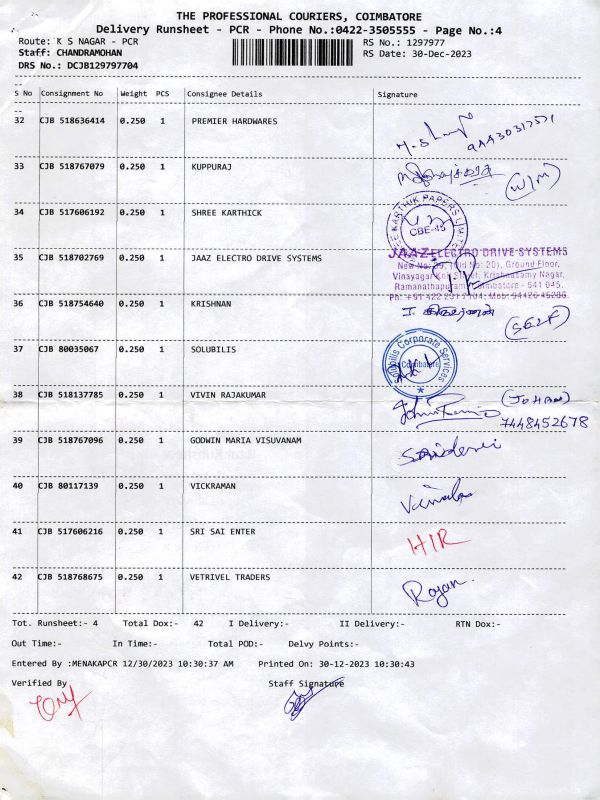 THE PROFESSIONAL COURIERS, COIMBATORE
Delivery Runsheet - PCR - Phone No.:0422-3505555 - Page No.:4
Route: K S NAGAR - PCR RS No.: 1297977
Staff: CHANDRAMOHAN RS Date: 30-Dec-2023
DRS No.: DCJB129797704
S No Consignment No Weight PCS Consignee Details Signature
32 CJB 518636414 0.250 1 PREMIER HARDWARES
33 CJB 518767079 0.250 1 KUPPURAJ
(W/M)
34 CJB 517606192 0.250 1 SHREE KARTHICK
KARTHIK PAPERS
CBE-45
35 CJB 518702769 0.250 1 JAAZ ELECTRO DRIVE SYSTEMS
JAAZ ELECTRO DRIVE SYSTEMS
Ground Floor,
Krishnasamy Nagar,
Coimbatore - 641 045.
36 CJB 518754640 0.250 1 KRISHNAN
(SELF)
37 CJB 80035067 0.250 1 SOLUBILIS
Corporate Services
Coimbatore
38 CJB 518137785 0.250 1 VIVIN RAJAKUMAR
7448452678
39 CJB 518767096 0.250 1 GODWIN MARIA VISUVANAM
40 CJB 80117139 0.250 1 VICKRAMAN
41 CJB 517606216 0.250 1 SRI SAI ENTER
HIR
42 CJB 518768675 0.250 1 VETRIVEL TRADERS
Rajan.
Tot. Runsheet:- 4 Total Dox:- 42 I Delivery:- II Delivery:- RTN Dox:-
Out Time:- In Time:- Total POD:- Delvy Points:-
Entered By :MENAKAPCR 12/30/2023 10:30:37 AM Printed On: 30-12-2023 10:30:43
Verified By Staff Signature